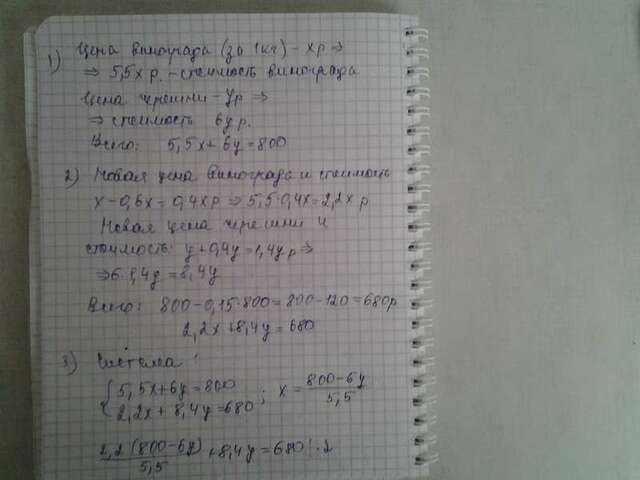 1) Цена винограда (за 1кг) – xр ⇒
⇒ 5,5x р. – стоимость винограда
Цена черешни – yр ⇒
⇒ стоимость 6y р.
Всего: 5,5x + 6y = 800
2) Новая цена винограда и стоимость
x – 0,6x = 0,4xр ⇒ 5,5·0,4x = 2,2x р
Новая цена черешни и
стоимость: y + 0,4y = 1,4y р ⇒
⇒ 6·1,4y = 8,4y
Всего: 800 – 0,15·800 = 800 – 120 = 680р
2,2x + 8,4y = 680
3) Система:
{5,5x + 6y = 800 ; x = (800 – 6y)/5,5
{2,2x + 8,4y = 680
2,2(800 – 6y)/5,5 + 8,4y = 680 |·2